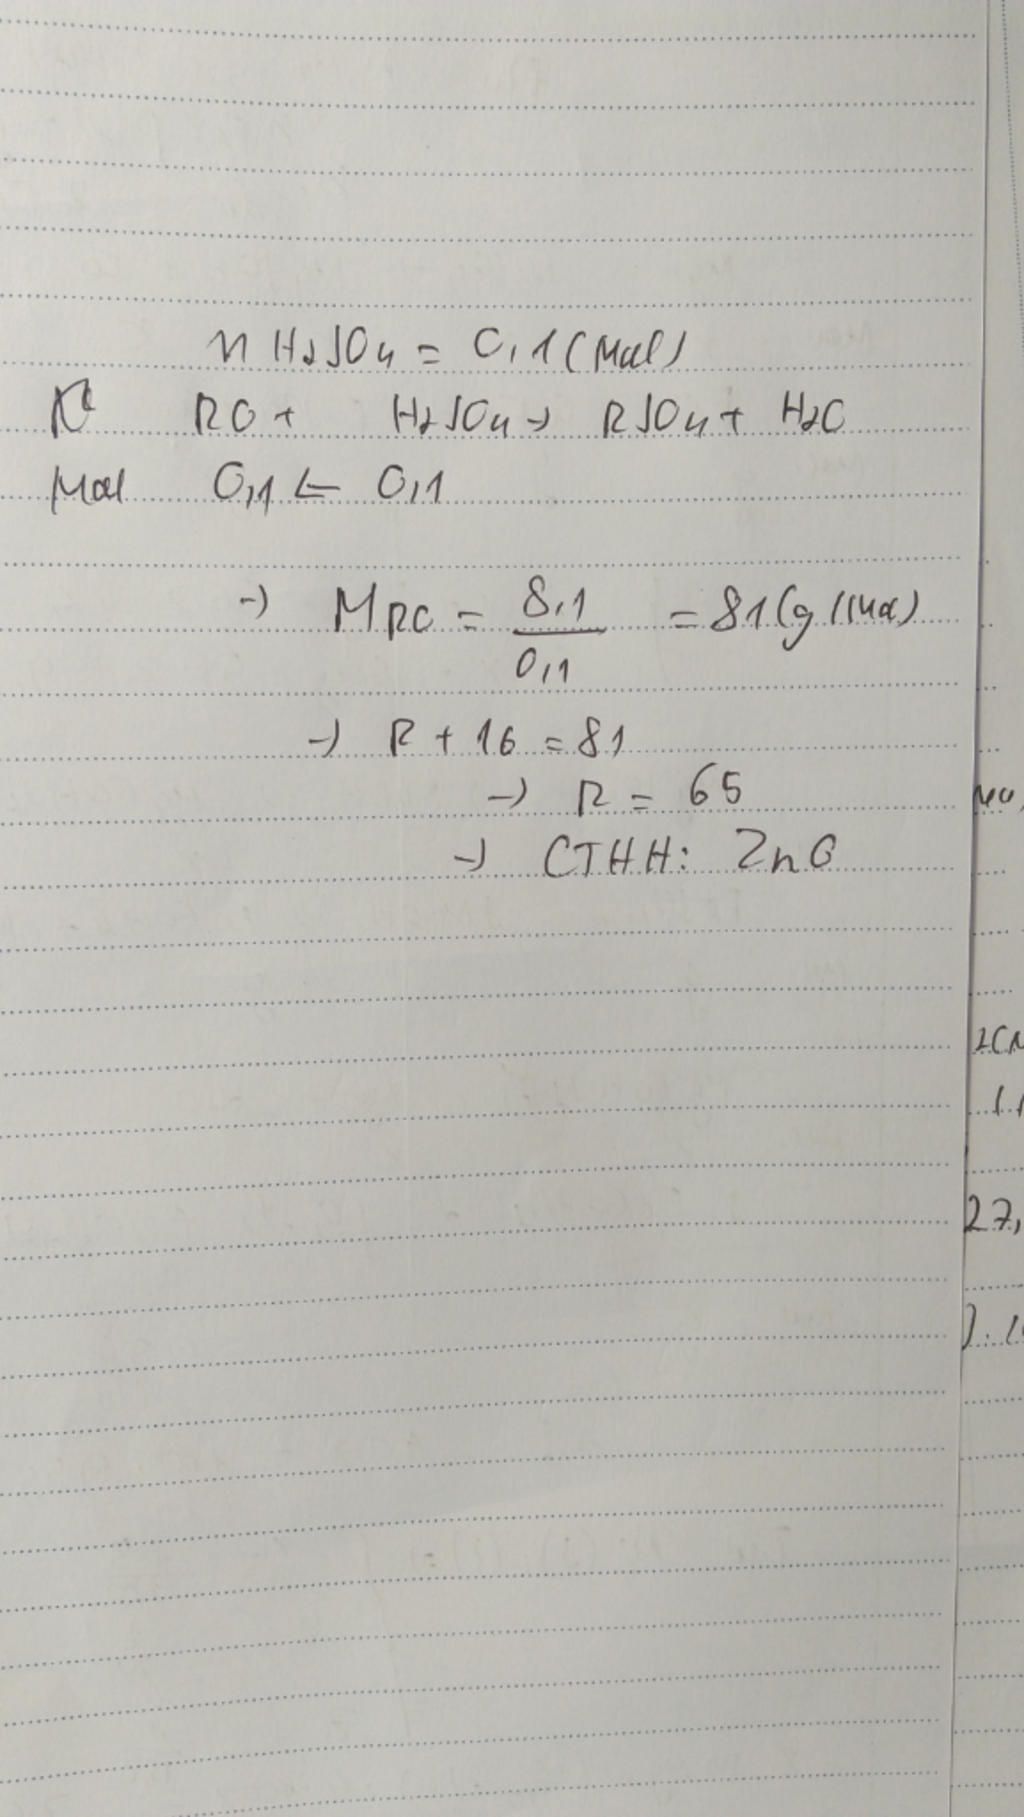 n H2SO4 = 0,1 (mol)
Pt RO + H2SO4 → RSO4 + H2O
Mol 0,1 ← 0,1
→ MRO = 8,1 / 0,1 = 81 (g/mol)
→ R + 16 = 81
→ R = 65
→ CTHH: ZnO
27,